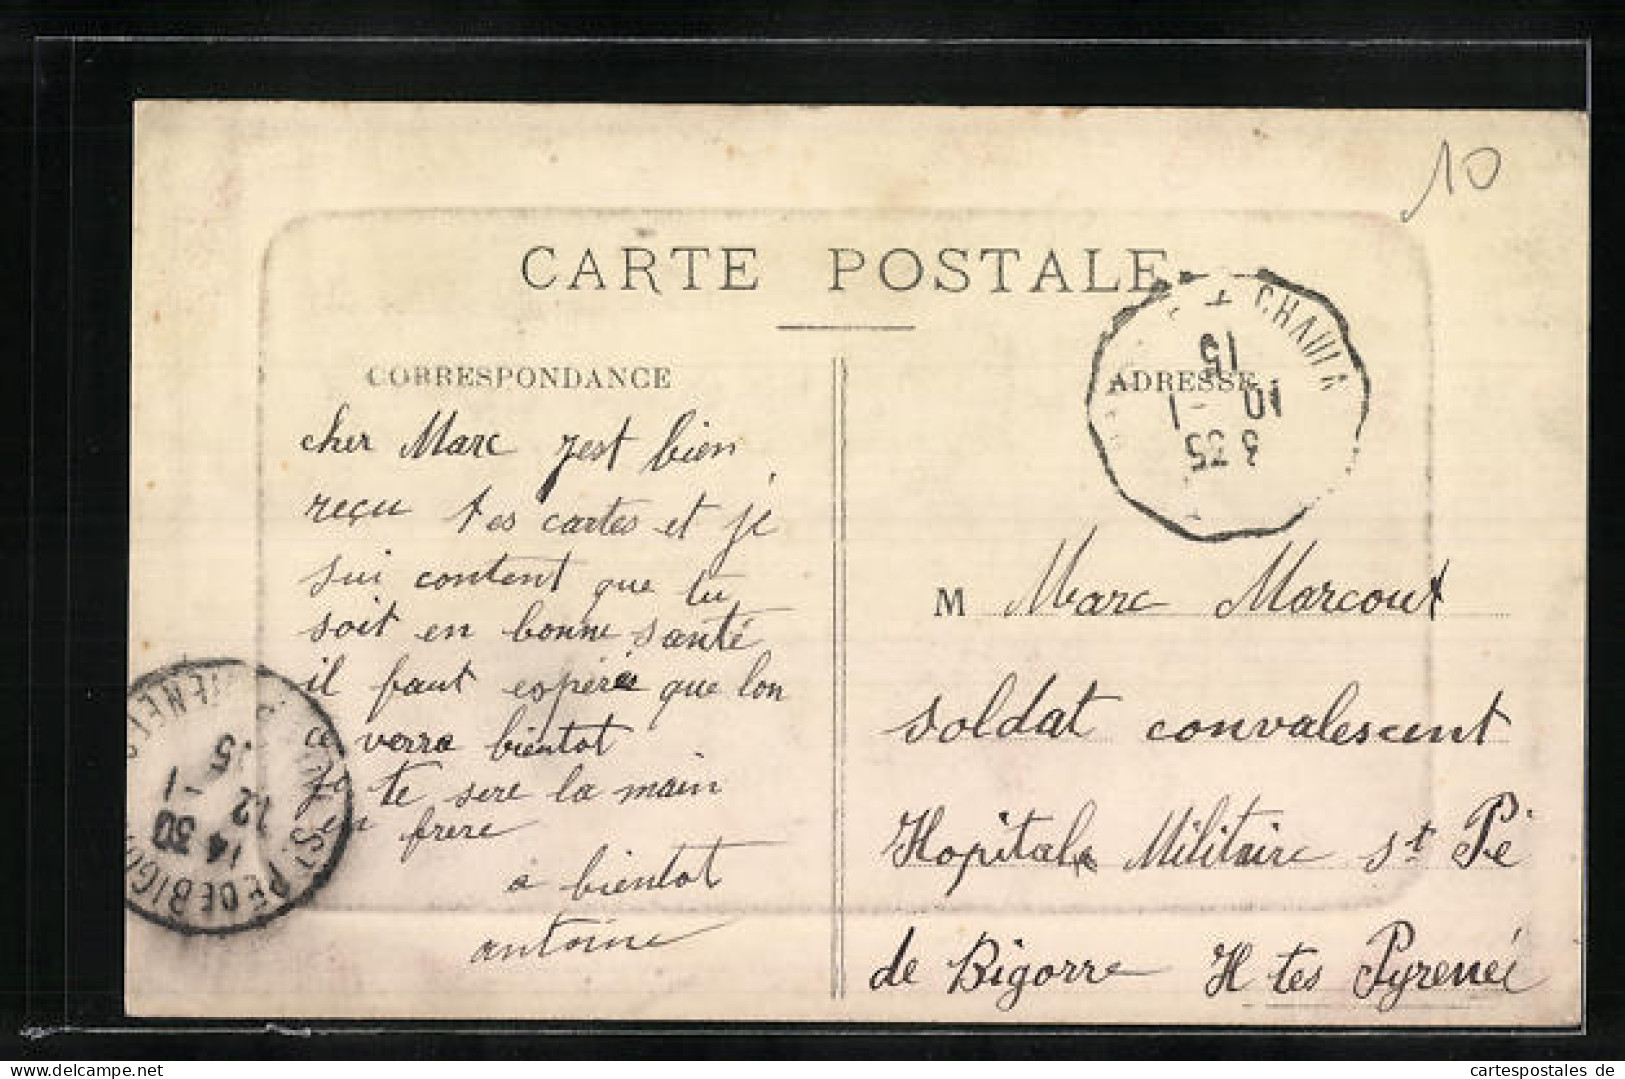 10
CARTE POSTALE
CORRESPONDANCE
ADRESSE
cher Marc jest bien
reçu tes cartes et je
sui content que tu
soit en bonne santé
il faut espérer que lon
ce verra bientot
te sere la main
ton frere
a bientot
antoine
M Marc Marcout
soldat convalescent
Hopital Militaire st Pé
de Bigorre H tes Pyrenéé
15
10 - 1
3 35
ST PÉ DE BIGORRE
14 30
12 - 1
15
www.cartespostales.eu
cartespostales de